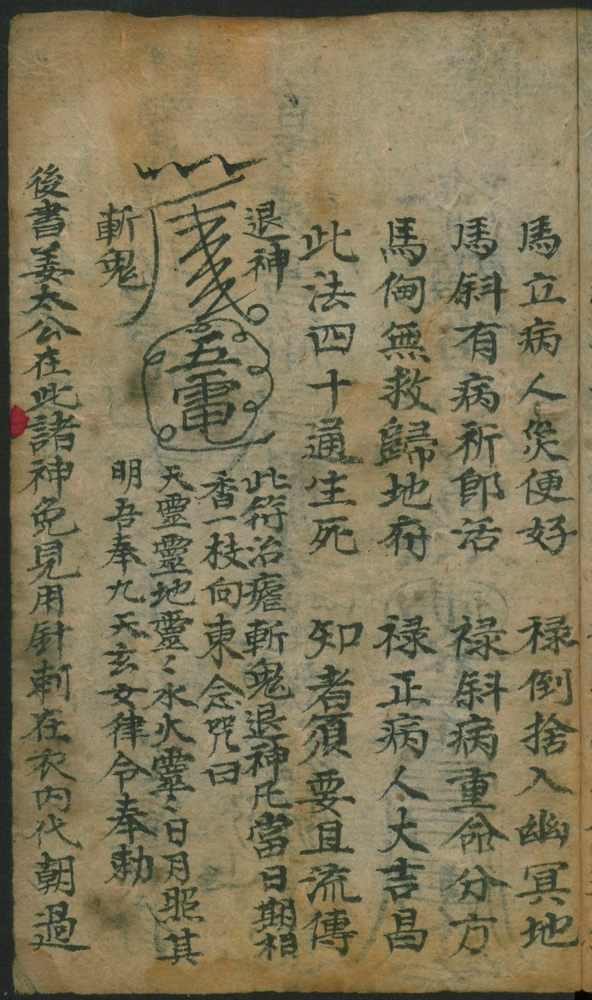 馬立病人災便好 祿倒捨入幽冥地
馬斜有病祈即活 祿斜病重命分方
馬倒無救歸地府 祿正病人大吉昌
此法四十通生死 知者須要且流傳
退神
五電
斬鬼
此符治瘧斬鬼退神凡當日期相
香一枝向東念咒曰
天靈靈地靈〻水火靈〻日月照其
明吾奉九天玄女律令奉勅
後書姜太公在此諸神免見用針刺在衣內代朝過